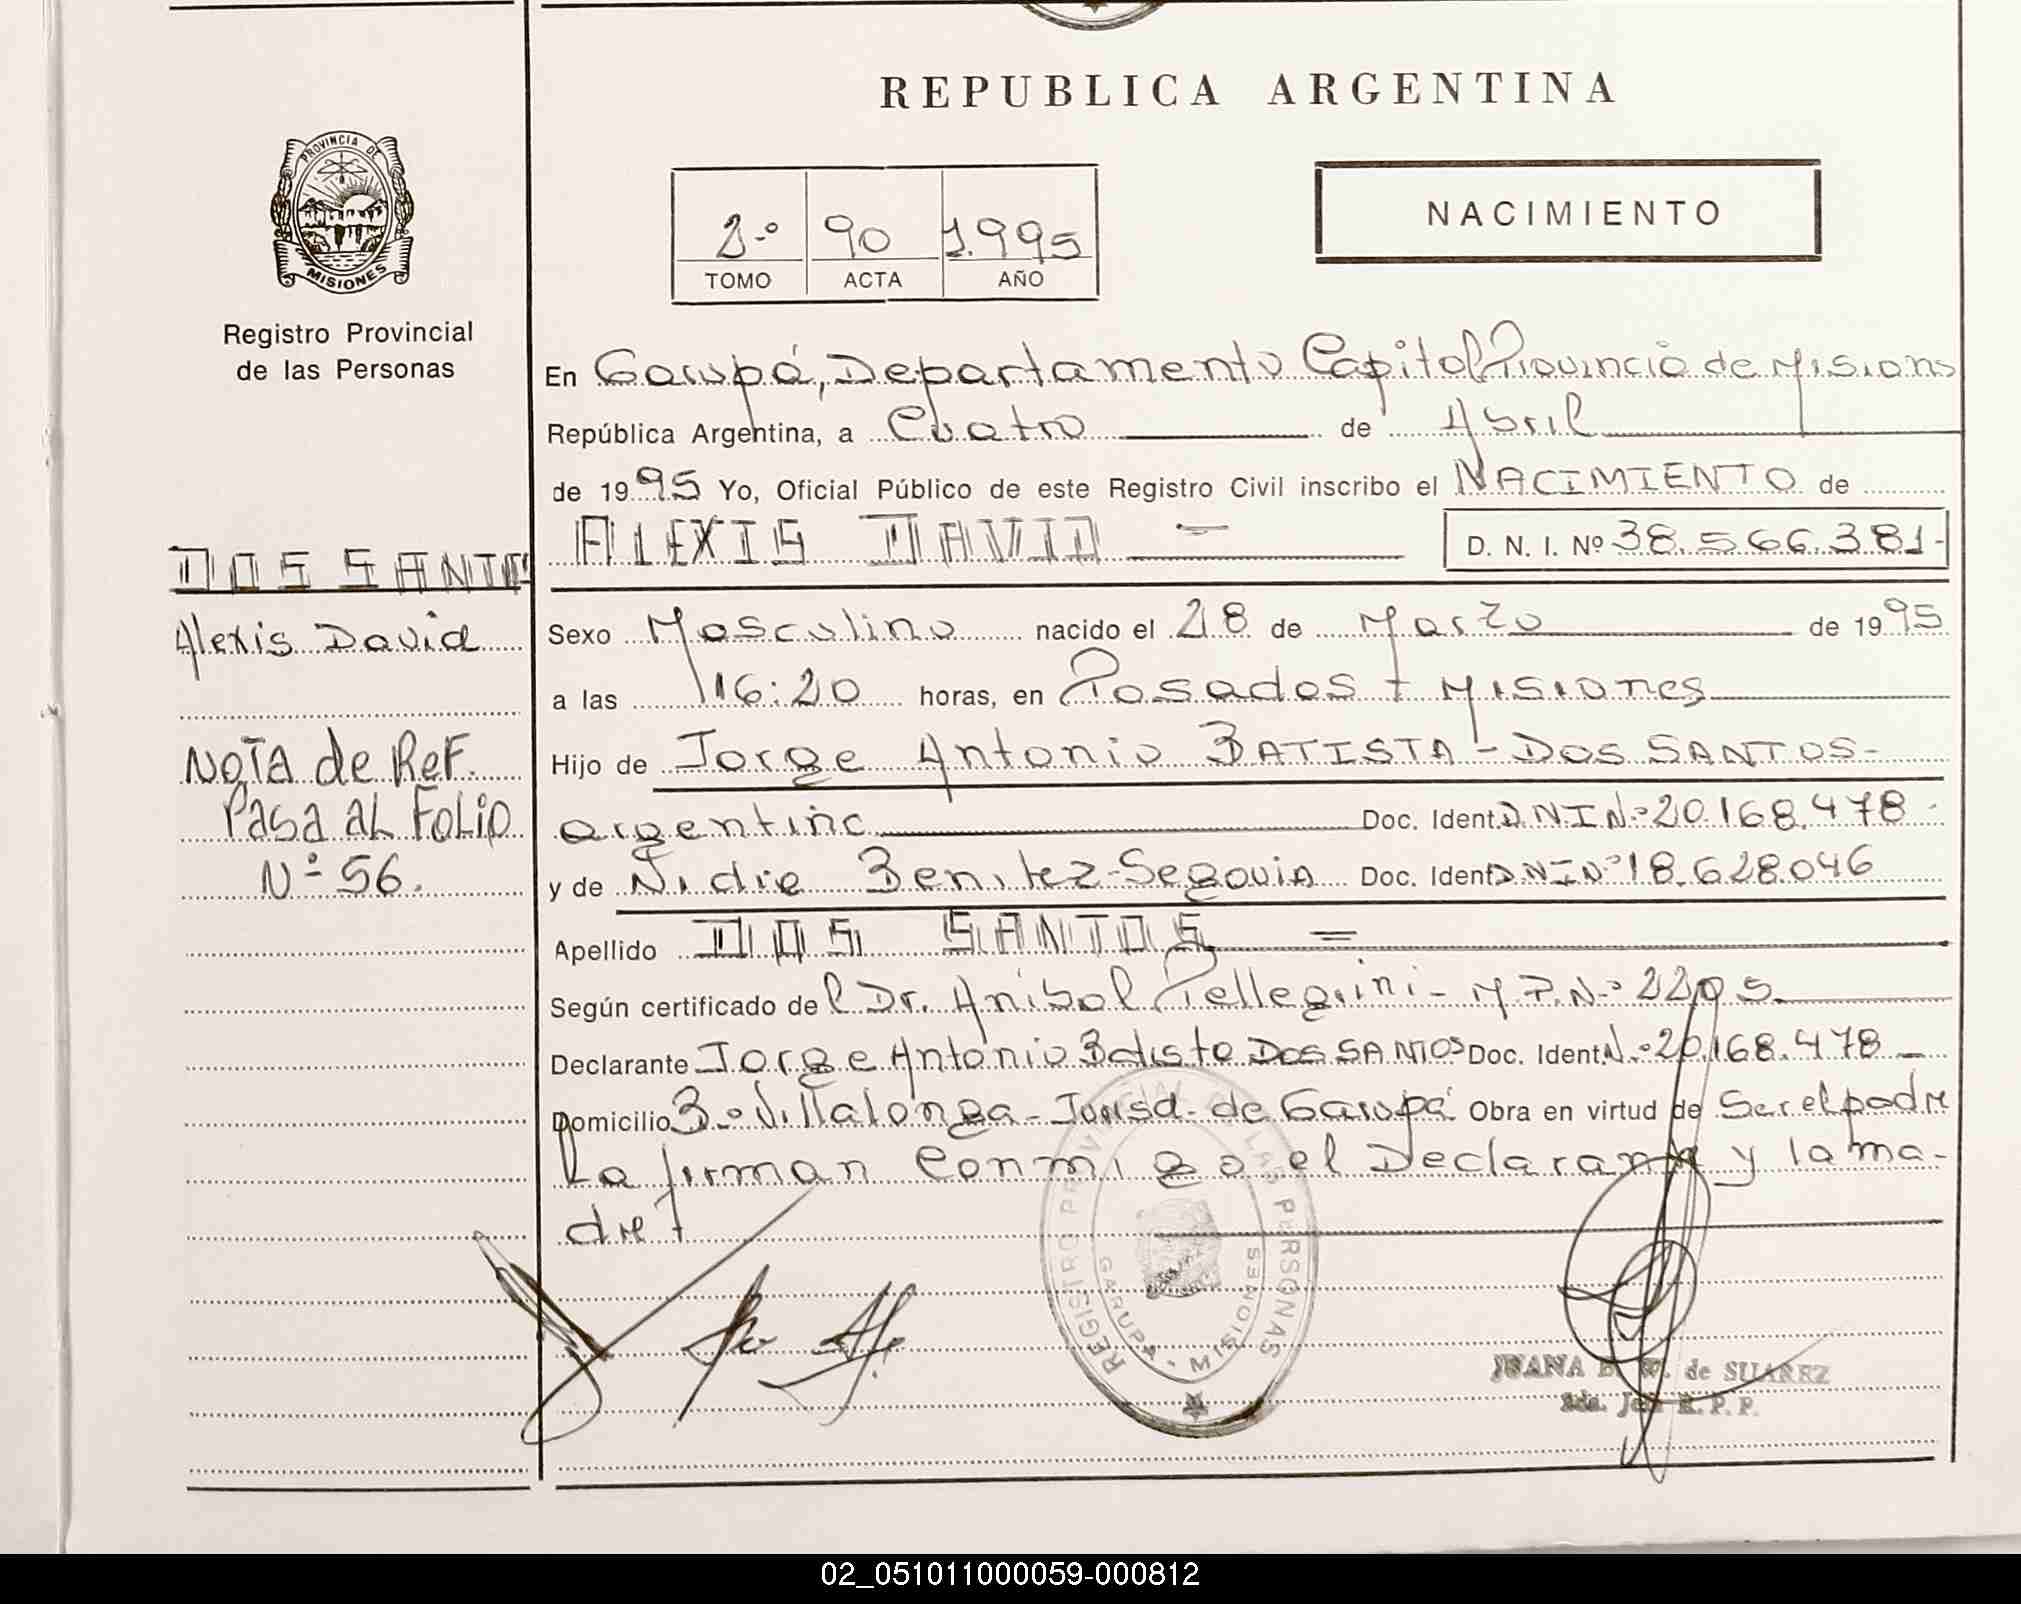 REPUBLICA ARGENTINA
PROVINCIA DE
MISIONES
Registro Provincial
de las Personas
NACIMIENTO
2.º 90 1.995
TOMO ACTA AÑO
En Garupá, Departamento Capital Provincia de Misiones
República Argentina, a Cuatro de Abril
de 1995 Yo, Oficial Público de este Registro Civil inscribo el NACIMIENTO de
ALEXIS DAVID = D. N. I. Nº 38.566.381-
DOS SANTOS
Alexis David
NOTA de REF.
PASA AL FOLIO
Nº 56.
Sexo Masculino nacido el 28 de Marzo de 1995
a las 16:20 horas, en Posadas + Misiones
Hijo de Jorge Antonio BATISTA - DOS SANTOS-
argentino Doc. Ident. DNI N.º 20.168.478
y de Nidia Benitez-Segovia Doc. Ident. DNI Nº 18.628.046
Apellido DOS SANTOS =
Según certificado del Dr. Anibal Pellegrini - M.P.N.º 2205
Declarante Jorge Antonio Batista DOS SANTOS Doc. Ident. N.º 20.168.478
Domicilio Bº Villalonga - Jurisd. de Garupá Obra en virtud de Ser el padre
La firman Conmigo el Declarante y la ma-
dre +
REGISTRO PROVINCIAL DE LAS PERSONAS
GARUPA - MISIONES
JUANA de SUAREZ
R. P. P.
02_051011000059-000812